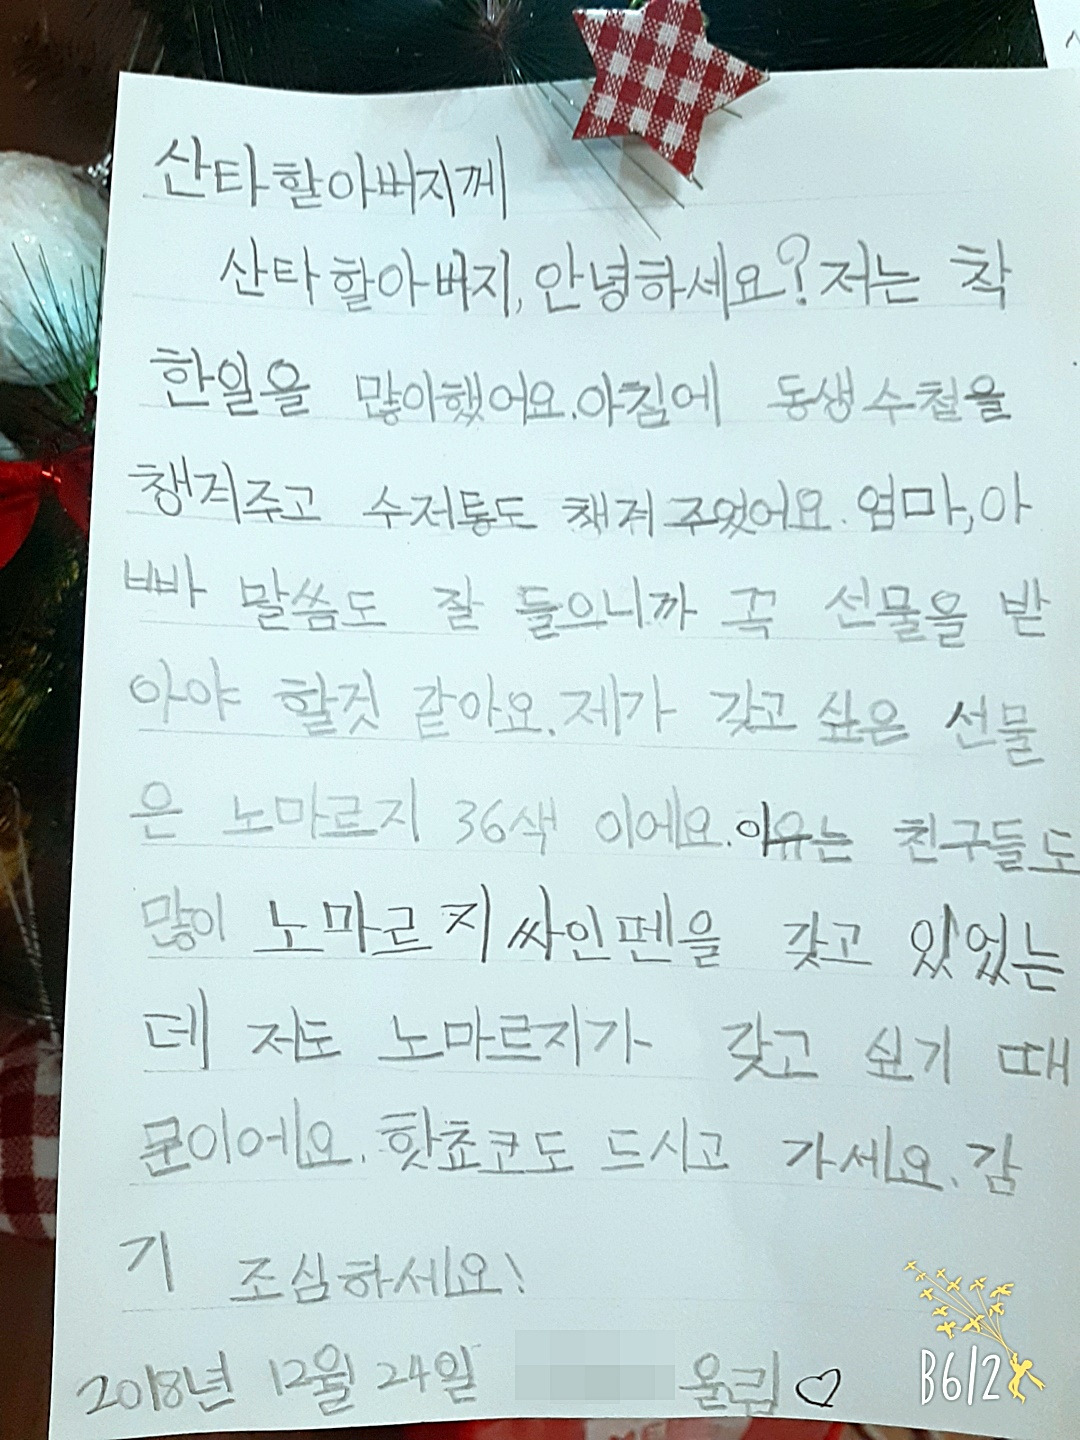 산타할아버지께
산타할아버지, 안녕하세요? 저는 착
한일을 많이했어요. 아침에 동생 수첩을
챙겨주고 수저통도 채겨주었어요. 엄마, 아
빠 말씀도 잘 들으니까 꼭 선물을 받
아야 할것 같아요. 제가 갖고 싶은 선물
은 노마르지 36색 이에요. 이유는 친구들도
많이 노마르지 싸인펜을 갖고 있었는
데 저도 노마르지가 갖고 싶기 때
문이에요. 핫쵸코도 드시고 가세요. 감
기 조심하세요!
2018년 12월 24일 올림♡
B612